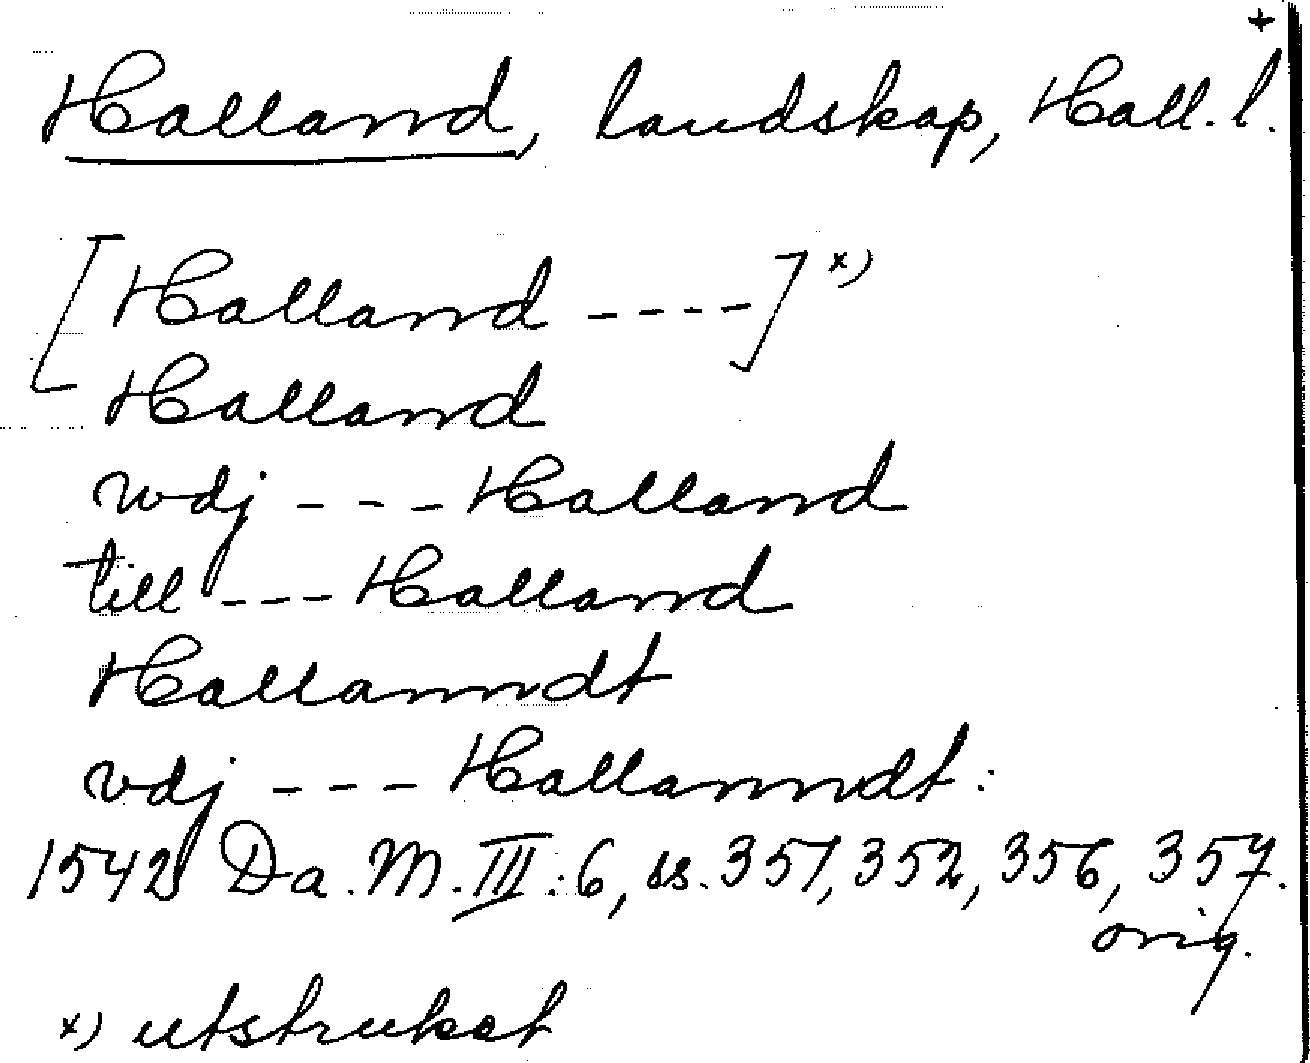 +
Halland, landskap, Hall. l.
[Halland ----] x)
Halland
wdj --- Halland
till --- Halland
Hallanndt
vdj --- Hallanndt:
1542 Da. M. III: 6, ss. 351, 352, 356, 357.
orig.
x) utstruket